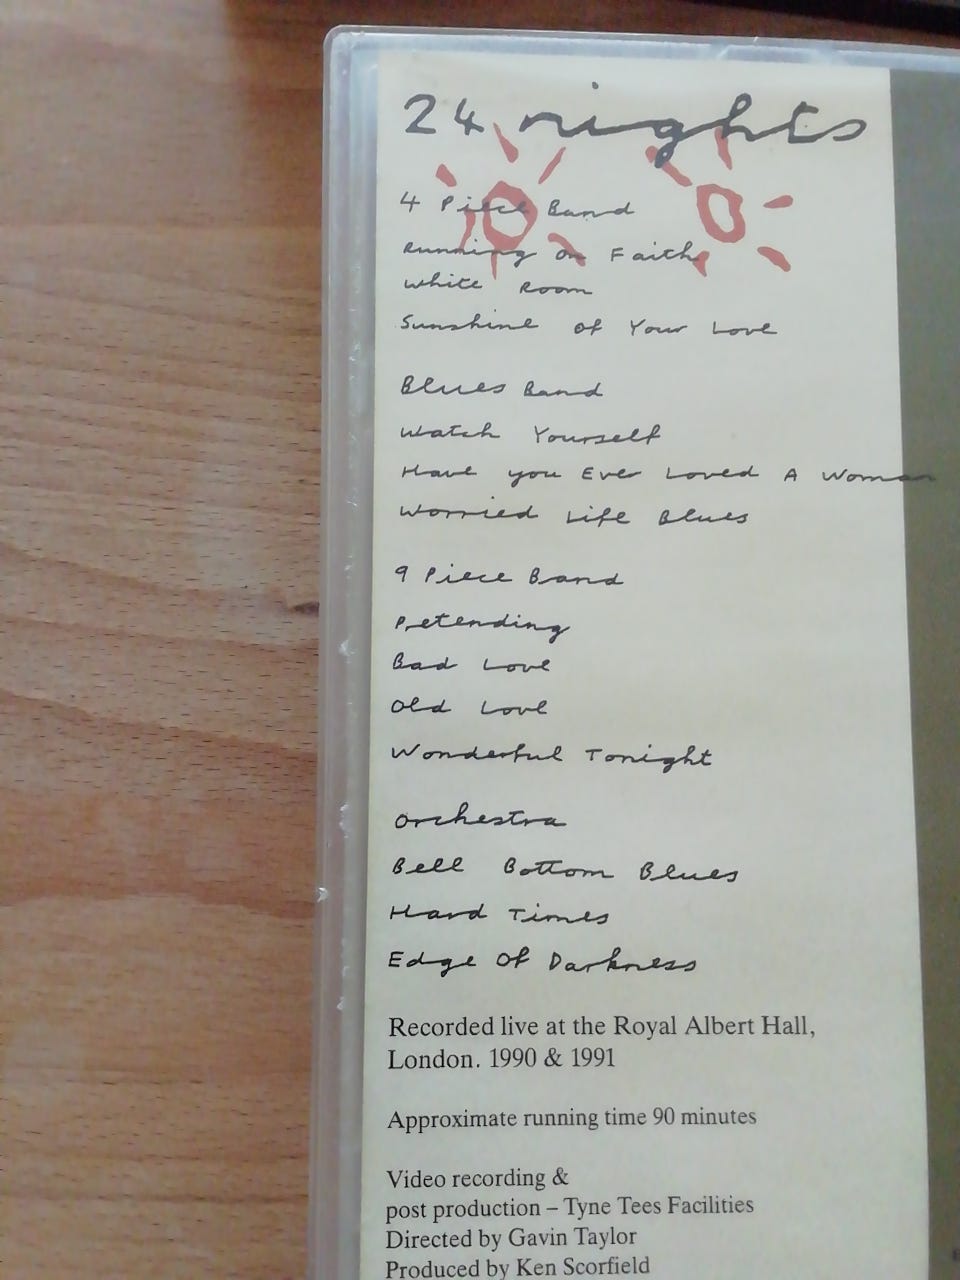 24 nights
4 Piece Band
Running on Faith
White Room
Sunshine of Your Love
Blues Band
Watch Yourself
Have you Ever Loved A Woman
Worried Life Blues
9 Piece Band
Pretending
Bad Love
Old Love
Wonderful Tonight
Orchestra
Bell Bottom Blues
Hard Times
Edge Of Darkness
Recorded live at the Royal Albert Hall,
London. 1990 & 1991
Approximate running time 90 minutes
Video recording &
post production – Tyne Tees Facilities
Directed by Gavin Taylor
Produced by Ken Scorfield